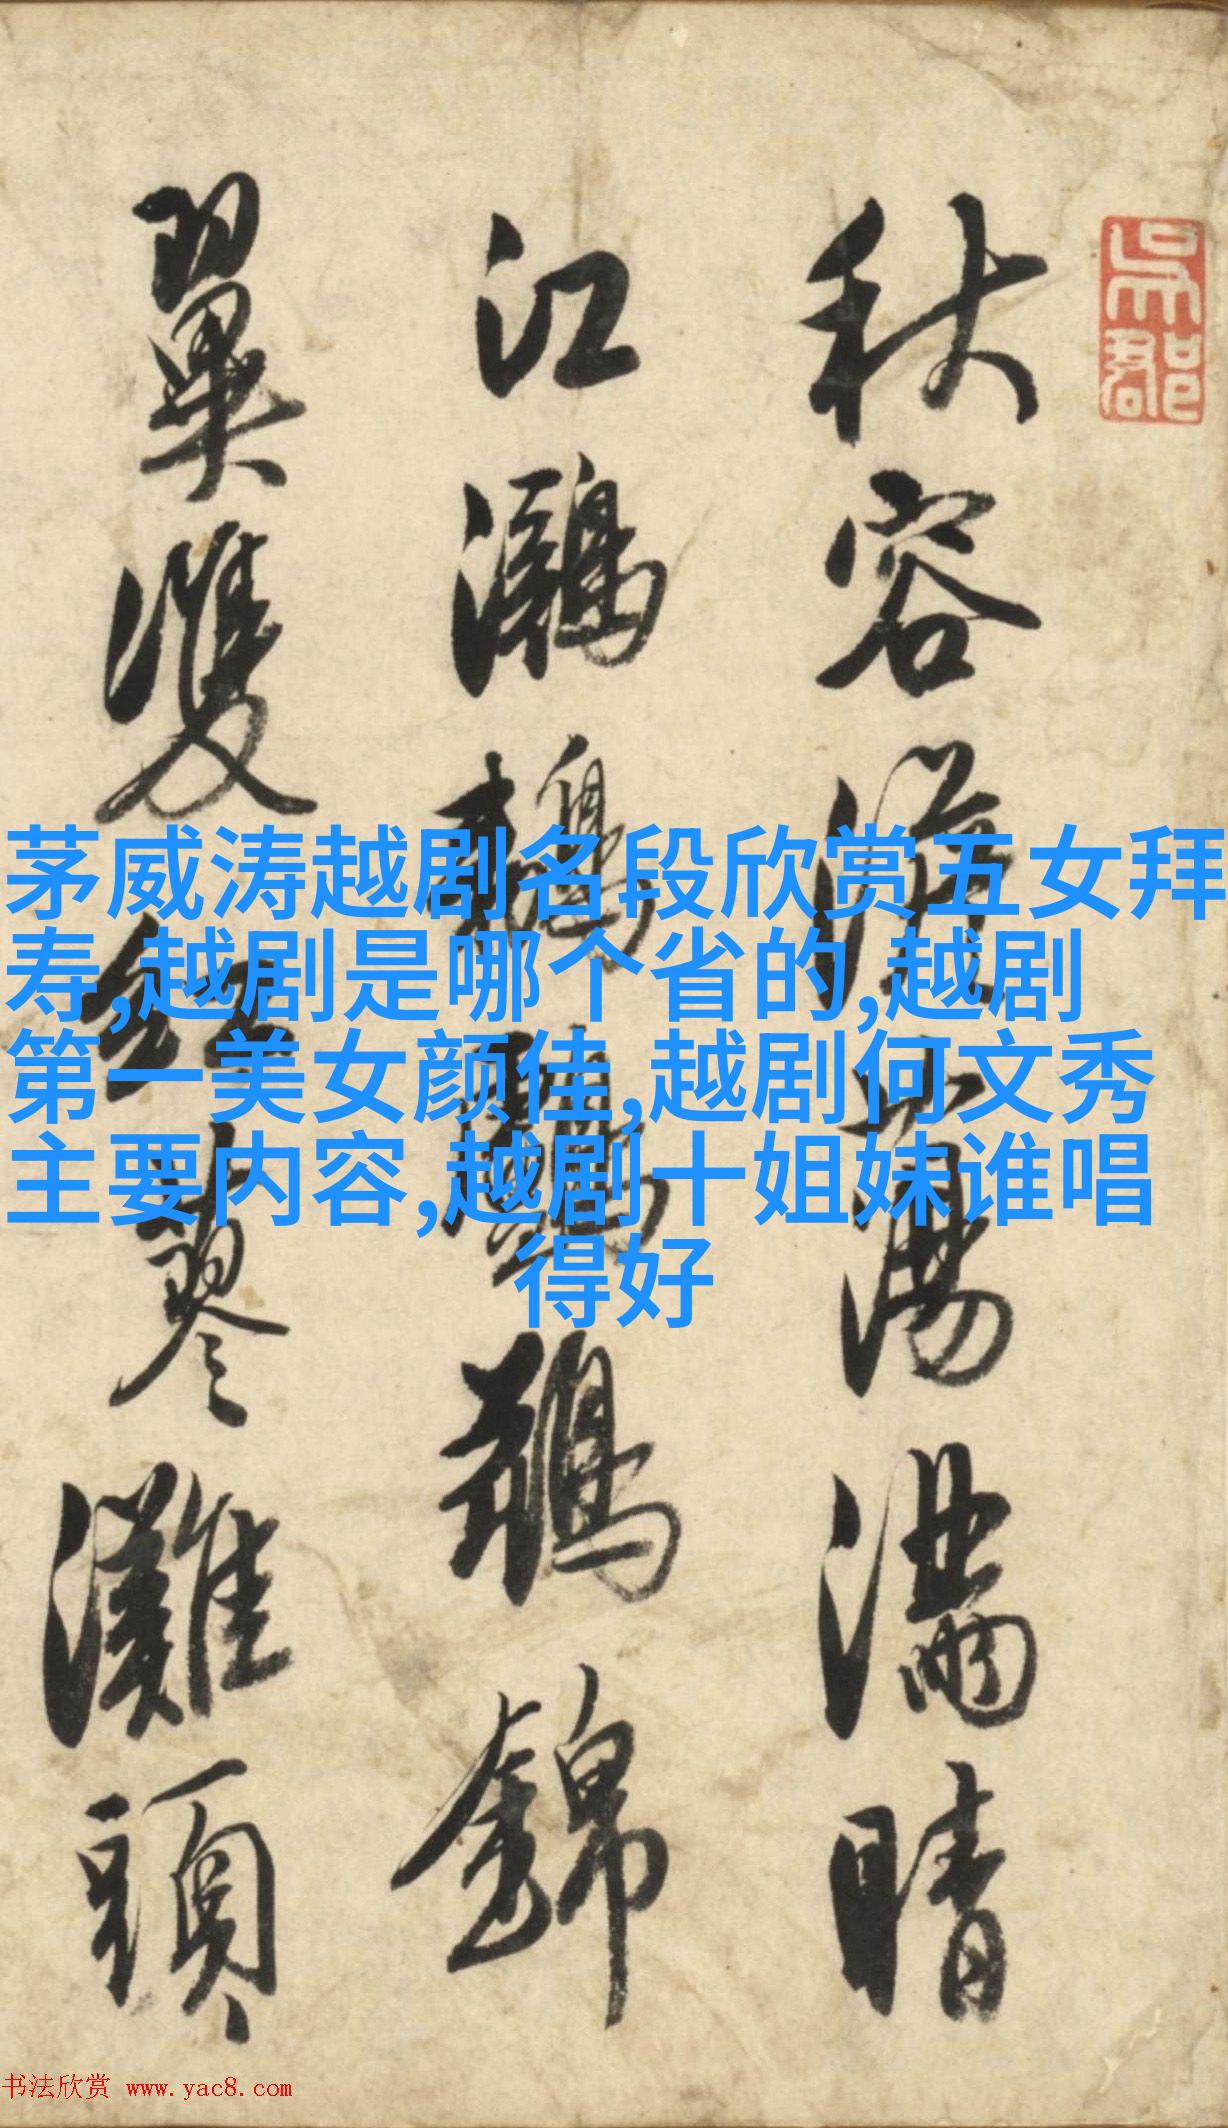 秋容淡蕩滿晴
江鸂鶒鵁鶄錦
翼雙紅蓼灘頭
吳郡
茅威涛越剧名段欣赏五女拜
寿,越剧是哪个省的,越剧
第一美女颜佳,越剧何文秀
主要内容,越剧十姐妹谁唱
得好
书法欣赏 www.yac8.com